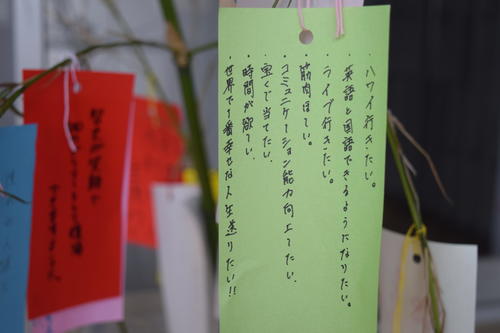 ・ハワイ行きたい。
・英語と国語できるようになりたい。
・ライブ行きたい。
・筋肉ほしい。
・コミュニケーション能力向上してたい、
・宝くじ当てたい、
・時間が欲しい、
・世界で1番幸せな人生送りたい!!